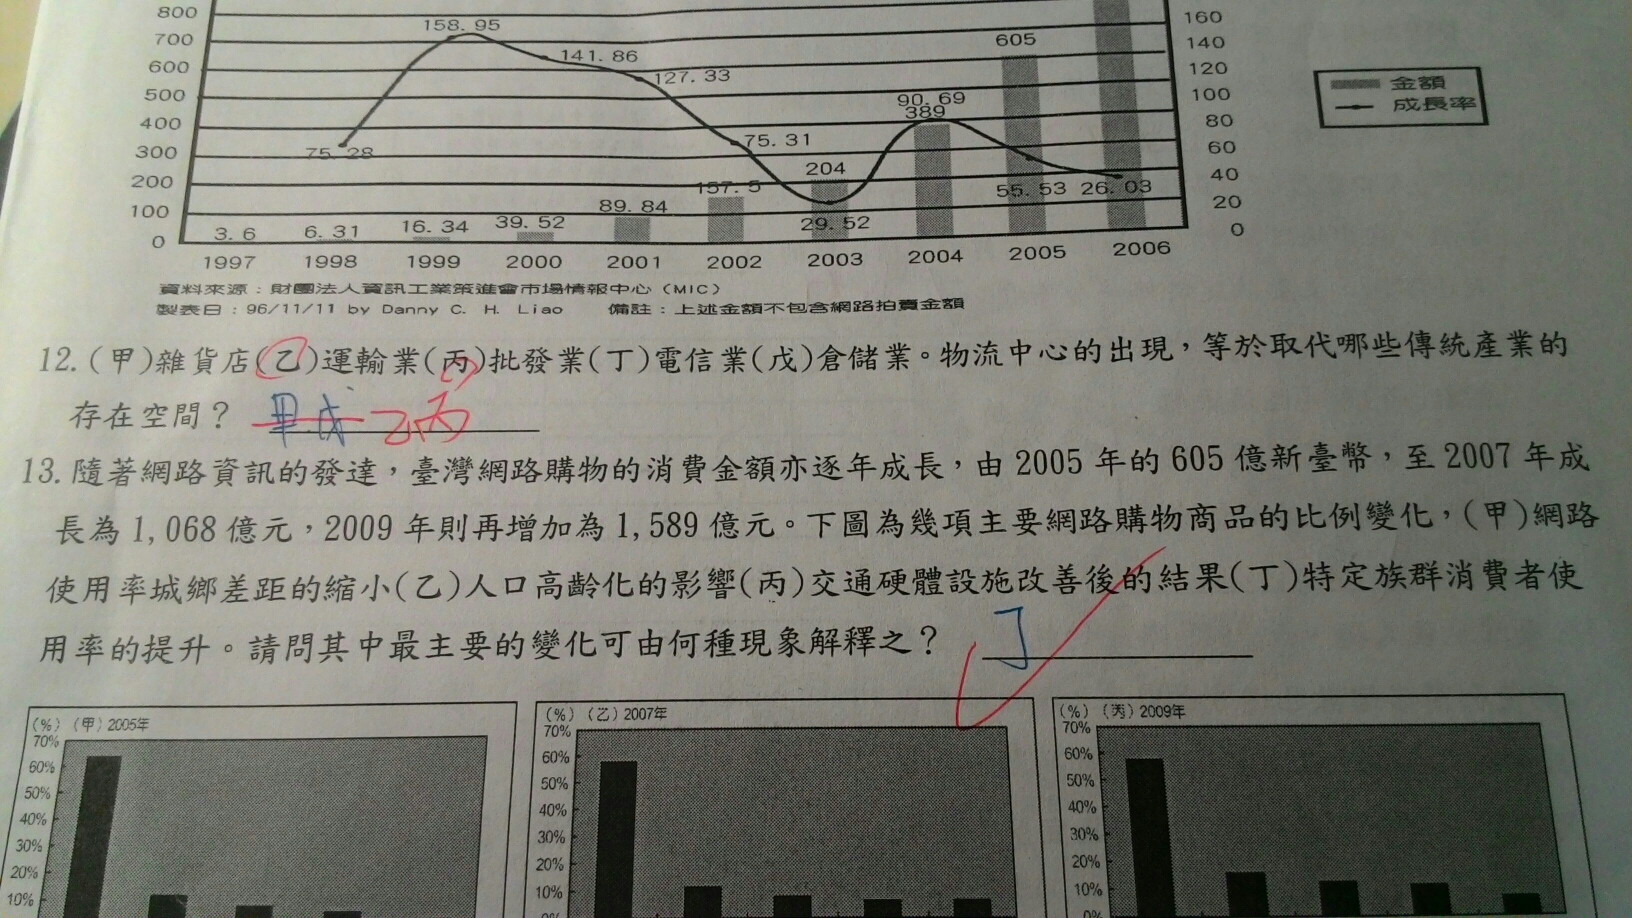 800
700
600
500
400
300
200
100
0
160
140
120
100
80
60
40
20
0
158.95
141.86
127.33
75.28
75.31
90.69
29.52
55.53
26.03
3.6
6.31
16.34
39.52
89.84
157.5
204
389
605
1997 1998 1999 2000 2001 2002 2003 2004 2005 2006
金額
成長率
資料來源：財團法人資訊工業策進會市場情報中心（MIC）
製表日：96/11/11 by Danny C. H. Liao 備註：上述金額不包含網路拍賣金額
12.(甲)雜貨店(乙)運輸業(丙)批發業(丁)電信業(戊)倉儲業。物流中心的出現，等於取代哪些傳統產業的
存在空間？ 乙丙
13.隨著網路資訊的發達，臺灣網路購物的消費金額亦逐年成長，由 2005 年的 605 億新臺幣，至 2007 年成
長為 1,068 億元，2009 年則再增加為 1,589 億元。下圖為幾項主要網路購物商品的比例變化，(甲)網路
使用率城鄉差距的縮小(乙)人口高齡化的影響(丙)交通硬體設施改善後的結果(丁)特定族群消費者使
用率的提升。請問其中最主要的變化可由何種現象解釋之？ 丁
(%) (甲) 2005年
70%
60%
50%
40%
30%
20%
10%
(%) (乙) 2007年
70%
60%
50%
40%
30%
20%
10%
0%
(%) (丙) 2009年
70%
60%
50%
40%
30%
20%
10%
0%